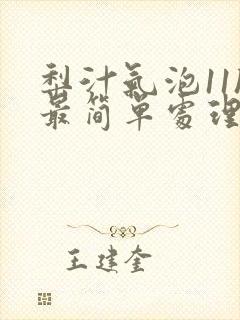 梨汁气泡11
最简单处理
王建奎